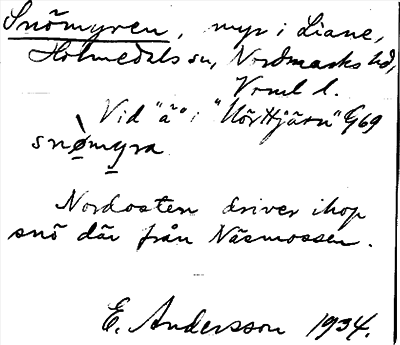 Snömyren, myr i Liane,
Holmedals sn, Nordmarks hd,
Vrml l.
Vid "ä" i "Nörttjärn" G69
snømyra
Nordosten driver ihop
snö där från Näsmossen.
E. Andersson 1934.